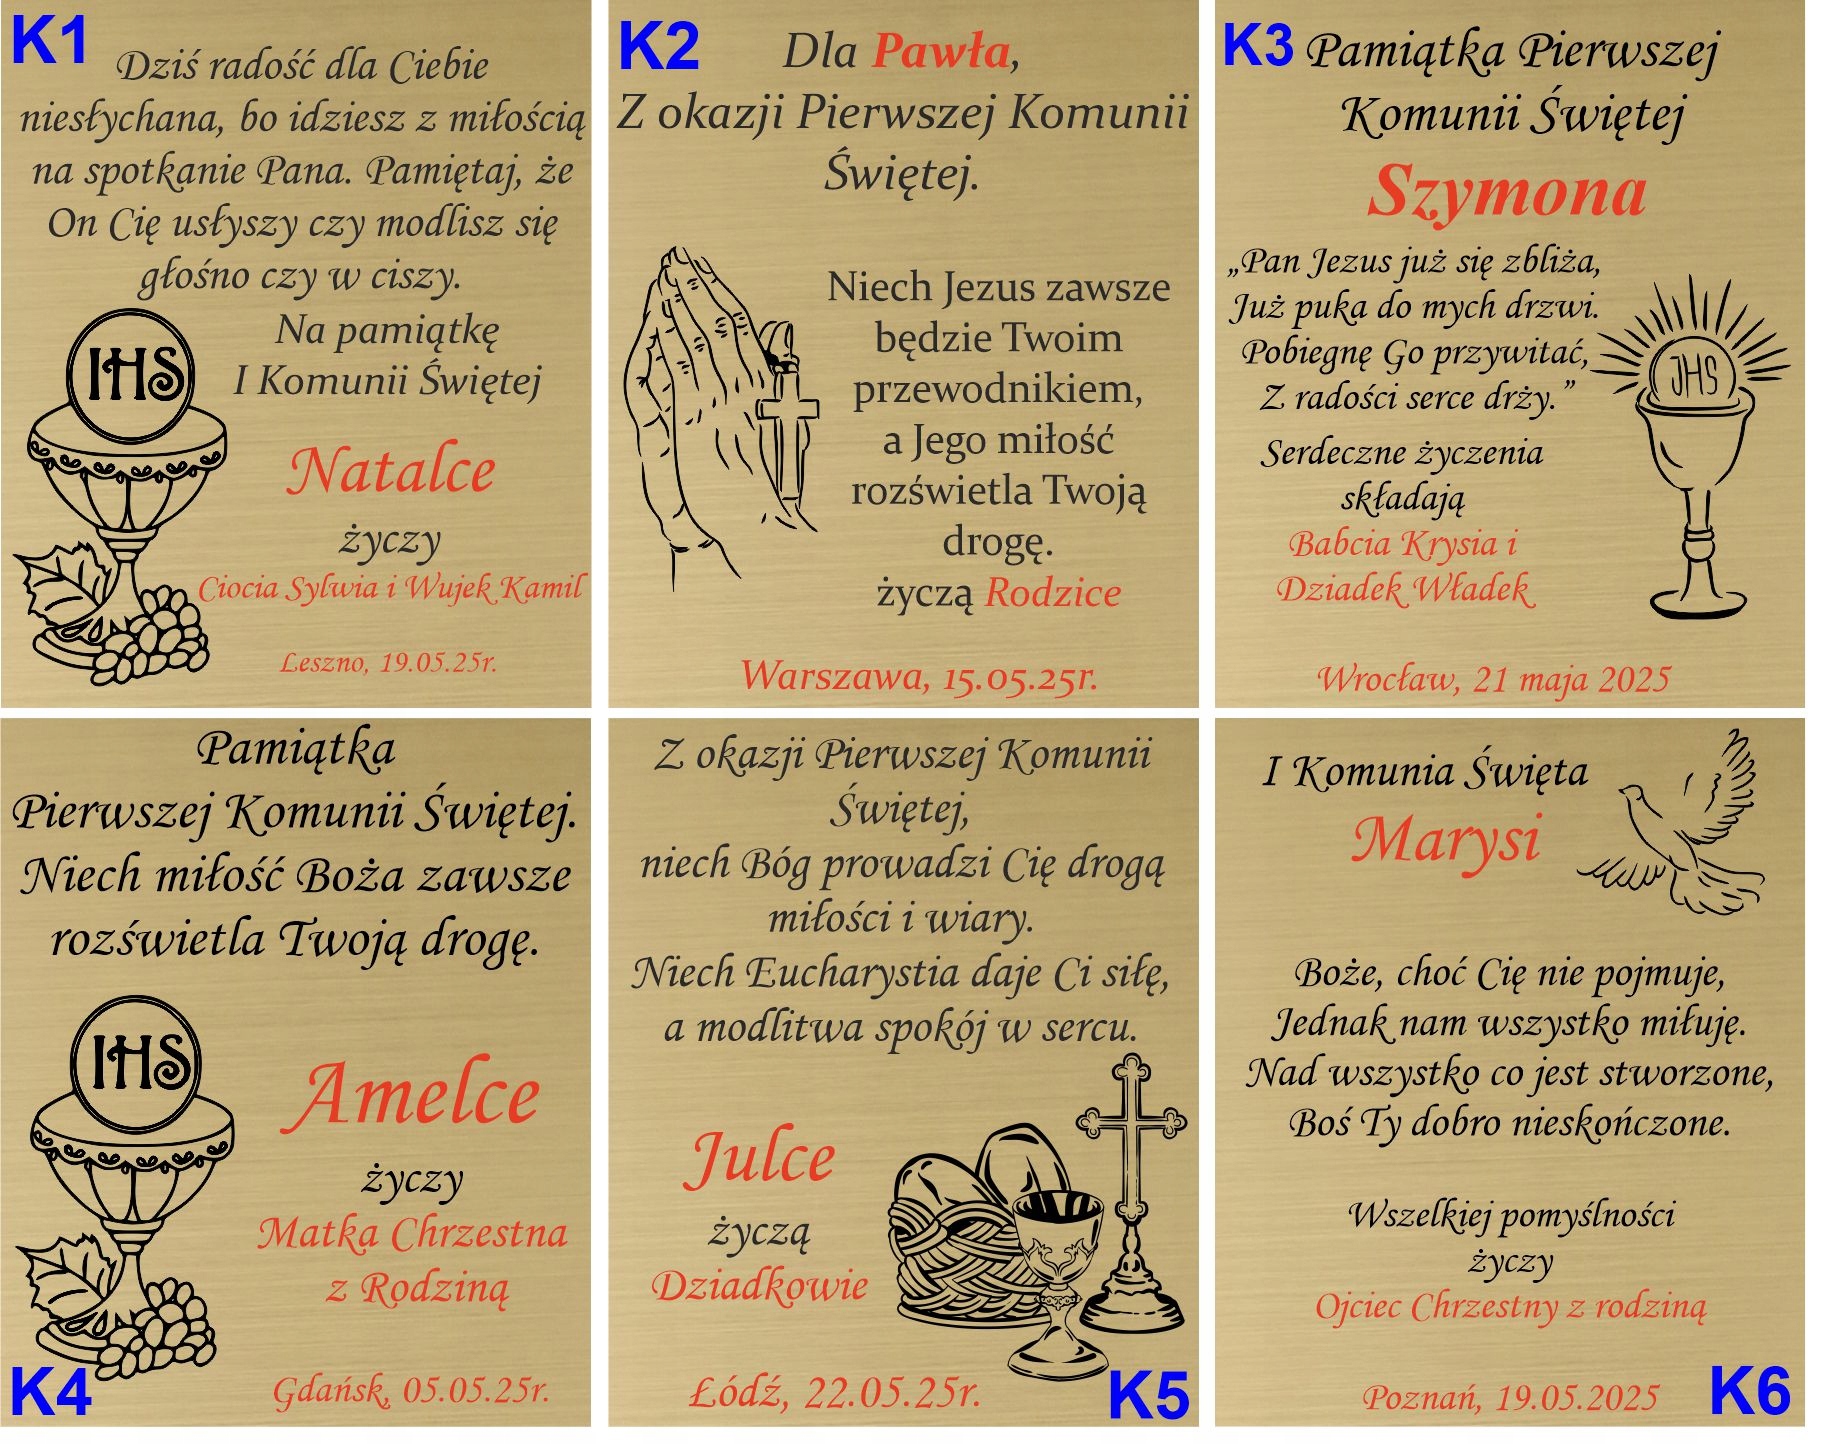 K1
Dziś radość dla Ciebie
niesłychana, bo idziesz z miłością
na spotkanie Pana. Pamiętaj, że
On Cię usłyszy czy modlisz się
głośno czy w ciszy.
Na pamiątkę
I Komunii Świętej
IHS
Natalce
życzy
Ciocia Sylwia i Wujek Kamil
Leszno, 19.05.25r.
K2
Dla Pawła,
Z okazji Pierwszej Komunii
Świętej.
Niech Jezus zawsze
będzie Twoim
przewodnikiem,
a Jego miłość
rozświetla Twoją
drogę.
życzą Rodzice
Warszawa, 15.05.25r.
K3
Pamiątka Pierwszej
Komunii Świętej
Szymona
„Pan Jezus już się zbliża,
Już puka do mych drzwi.
Pobiegnę Go przywitać,
Z radości serce drży.”
JHS
Serdeczne życzenia
składają
Babcia Krysia i
Dziadek Władek
Wrocław, 21 maja 2025
Pamiątka
Pierwszej Komunii Świętej.
Niech miłość Boża zawsze
rozświetla Twoją drogę.
IHS
Amelce
życzy
Matka Chrzestna
z Rodziną
Gdańsk, 05.05.25r.
K4
Z okazji Pierwszej Komunii
Świętej,
niech Bóg prowadzi Cię drogą
miłości i wiary.
Niech Eucharystia daje Ci siłę,
a modlitwa spokój w sercu.
Julce
życzą
Dziadkowie
Łódź, 22.05.25r.
K5
I Komunia Święta
Marysi
Boże, choć Cię nie pojmuje,
Jednak nam wszystko miłuję.
Nad wszystko co jest stworzone,
Boś Ty dobro nieskończone.
Wszelkiej pomyślności
życzy
Ojciec Chrzestny z rodziną
Poznań, 19.05.2025
K6